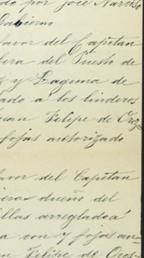 do por José Narciso
Gabierno
favor del Capitan
era del Puesto de
y Laguna de
ado a los linderos
uan Felipe de Oroz
fojas autorizado
avor del Capitan
iero dueño del
llas arregladas
a con y fojas au
an Felipe de Oros